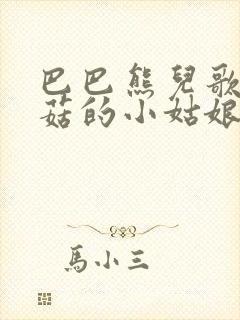 巴巴熊兒歌
菇的小姑娘
馬小三